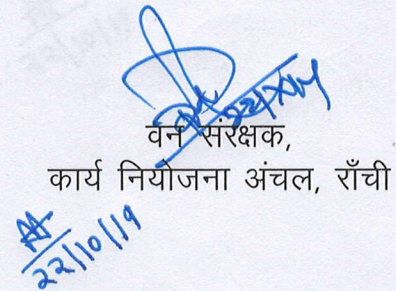 वन संरक्षक,
कार्य नियोजना अंचल, राँची
22/10/19